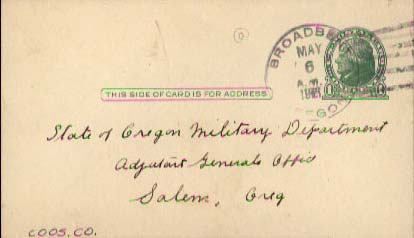 BROADBE
MAY
6
A.M.
THIS SIDE OF CARD IS FOR ADDRESS
State of Oregon Military Department
Adjutant Generals Offic
Salem, Oreg
COOS. CO.